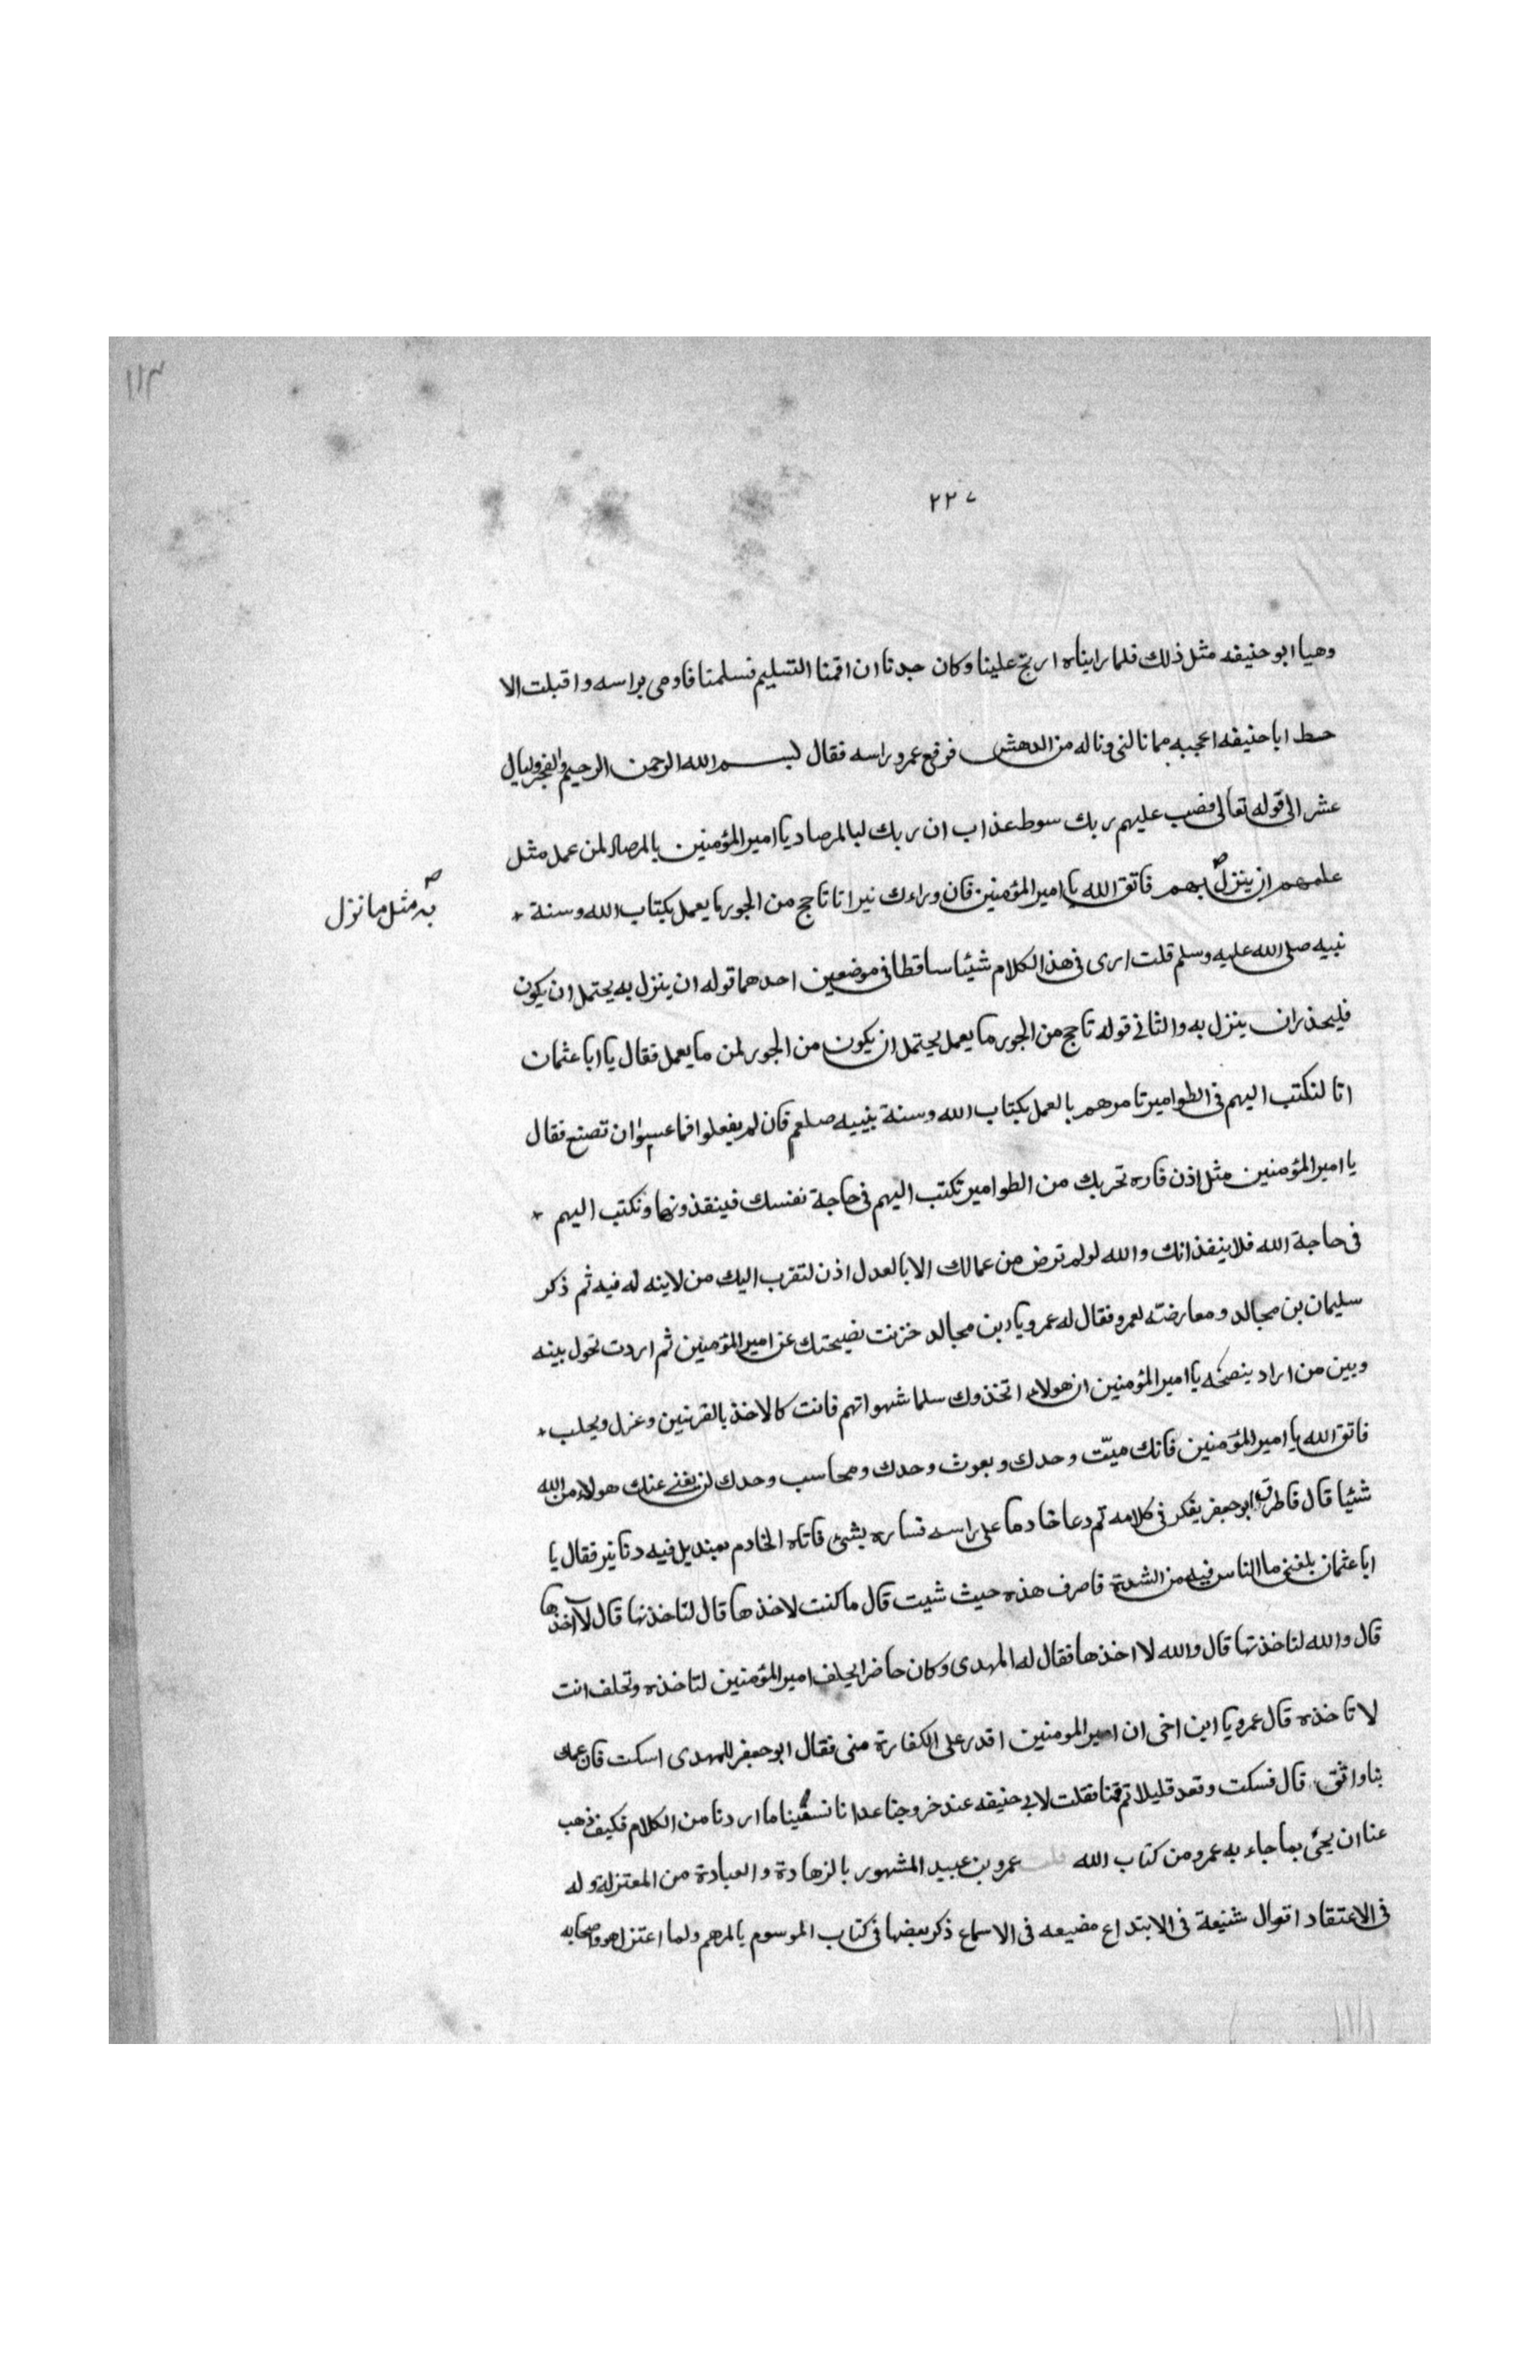 ١١٣
٢٢٧
وهيا ابو حنيفه مثل ذلك فلما رايناه ارتج علينا وكان جدنا ان اقمنا التسليم فسلمنا فاومى براسه واقبلت الا
حظ ابا حنيفه اعجبه مما نالنى وناله من الدهش فرفع عمرو راسه فقال بسم الله الرحمن الرحيم والفجر وليال
عشر الى قوله تعالى فصب عليهم ربك سوط عذاب ان ربك لبالمرصاد يا امير المؤمنين بالمرصاد لمن عمل مثل
علمهم ان ينزل بهم فاتق الله يا امير المؤمنين فان وراءك نيرانا تاجج من الجور ما يعمل بكتاب الله وسنة
به مثل ما نزل
نبيه صلى الله عليه وسلم قلت ارى فى هذا الكلام شيئا ساقطا فى موضعين احدهما قوله ان ينزل به يحتمل ان يكون
فليحذر ان ينزل به والثانى قوله تاجج من الجور ما يعمل يحتمل ان يكون من الجور لمن ما يعمل فقال يا ابا عثمان
انا لنكتب اليهم فى الطوامير تامرهم بالعمل بكتاب الله وسنة نبييه صلعم فان لم يفعلوا فما ان تصنع فقال
يا امير المؤمنين مثل اذن فاره تحربك من الطوامير تكتب اليهم فى حاجة نفسك فينفذونها ونكتب اليهم
فى حاجة الله فلا ينفذ انك والله لو لم ترض من عمالك الا بالعدل اذن لتقرب اليك من لاينه له فيه ثم ذكر
سليمان بن مجالد ومعارضته لعمرو فقال له عمرو يا دبن مجالد خزنت نصيحتك عن امير المؤمنين ثم اردت تحول بينه
وبين من اراد ينصحه يا امير المؤمنين ان هولاء اتخذوك سلما شهواتهم فانت كالاخذ بالقرنين وغزل ويحلب
فاتق الله يا امير المؤمنين فانك ميّت وحدك وبعوث وحدك ومحاسب وحدك لن يغنى عنك هولاء من الله
شئيا قال فاطرق ابو جعفر يفكر فى كلامه ثم دعا خادما على راسه فساره بشئ فاتاه الخادم بمنديل فيه دنانير فقال يا
ابا عثمان بلغنى ما الناس فيه من الشدة فاصرف هذه حيث شيت قال ما كنت لاخذها قال لتاخذنها قال لا آخذها
قال والله لتاخذنها قال والله لا اخذها فقال له المهدى وكان حاضرا يحلف امير المؤمنين لتاخذه وتحلف انت
لا تاخذه قال عمرو يا ابن اخى ان امير المومنين اقدر على الكفارة منى فقال ابو جعفر للمهدى اسكت فان عمك
بنا واثق قال فسكت وقعد قليلا ثم قمنا فقلت لابى حنيفه عند خروجنا عدانا نسيّنا ما اردنا من الكلام فكيف ذهب
عنا ان يحئ بما جاء به عمرو من كتاب الله قلت عمرو بن عبيد المشهور بالزهادة والعبادة من المعتزلة وله
فى الاعتقاد اقوال شنيعة فى الابتداع مضيعه فى الاسماع ذكر بعضها فى كتاب الموسوم بالمرهم ولما اعتزل هو واصحابه